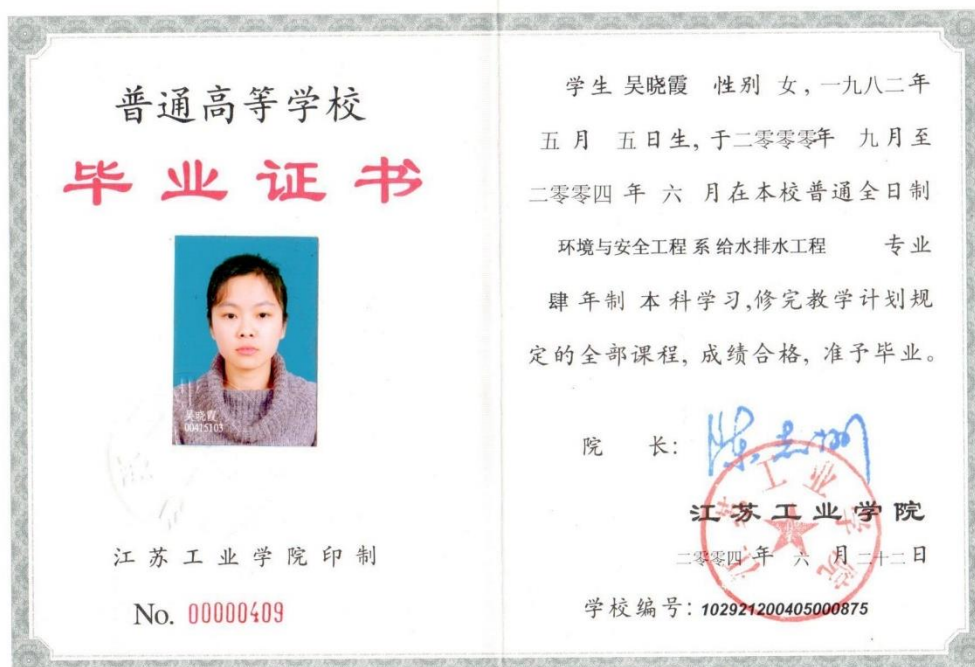 普通高等学校
毕业证书
吴晓霞
00415103
江苏工业学院印制
No. 00000409
学生 吴晓霞 性别 女，一九八二年
五月 五日生，于二零零零年 九月至
二零零四 年 六 月在本校普通全日制
环境与安全工程 系 给水排水工程 专业
肆 年制 本科学习，修完教学计划规
定的全部课程，成绩合格，准予毕业。
院 长：
江苏工业学院
江苏工业学院
二零零四 年 六 月 二十二日
学校编号：102921200405000875